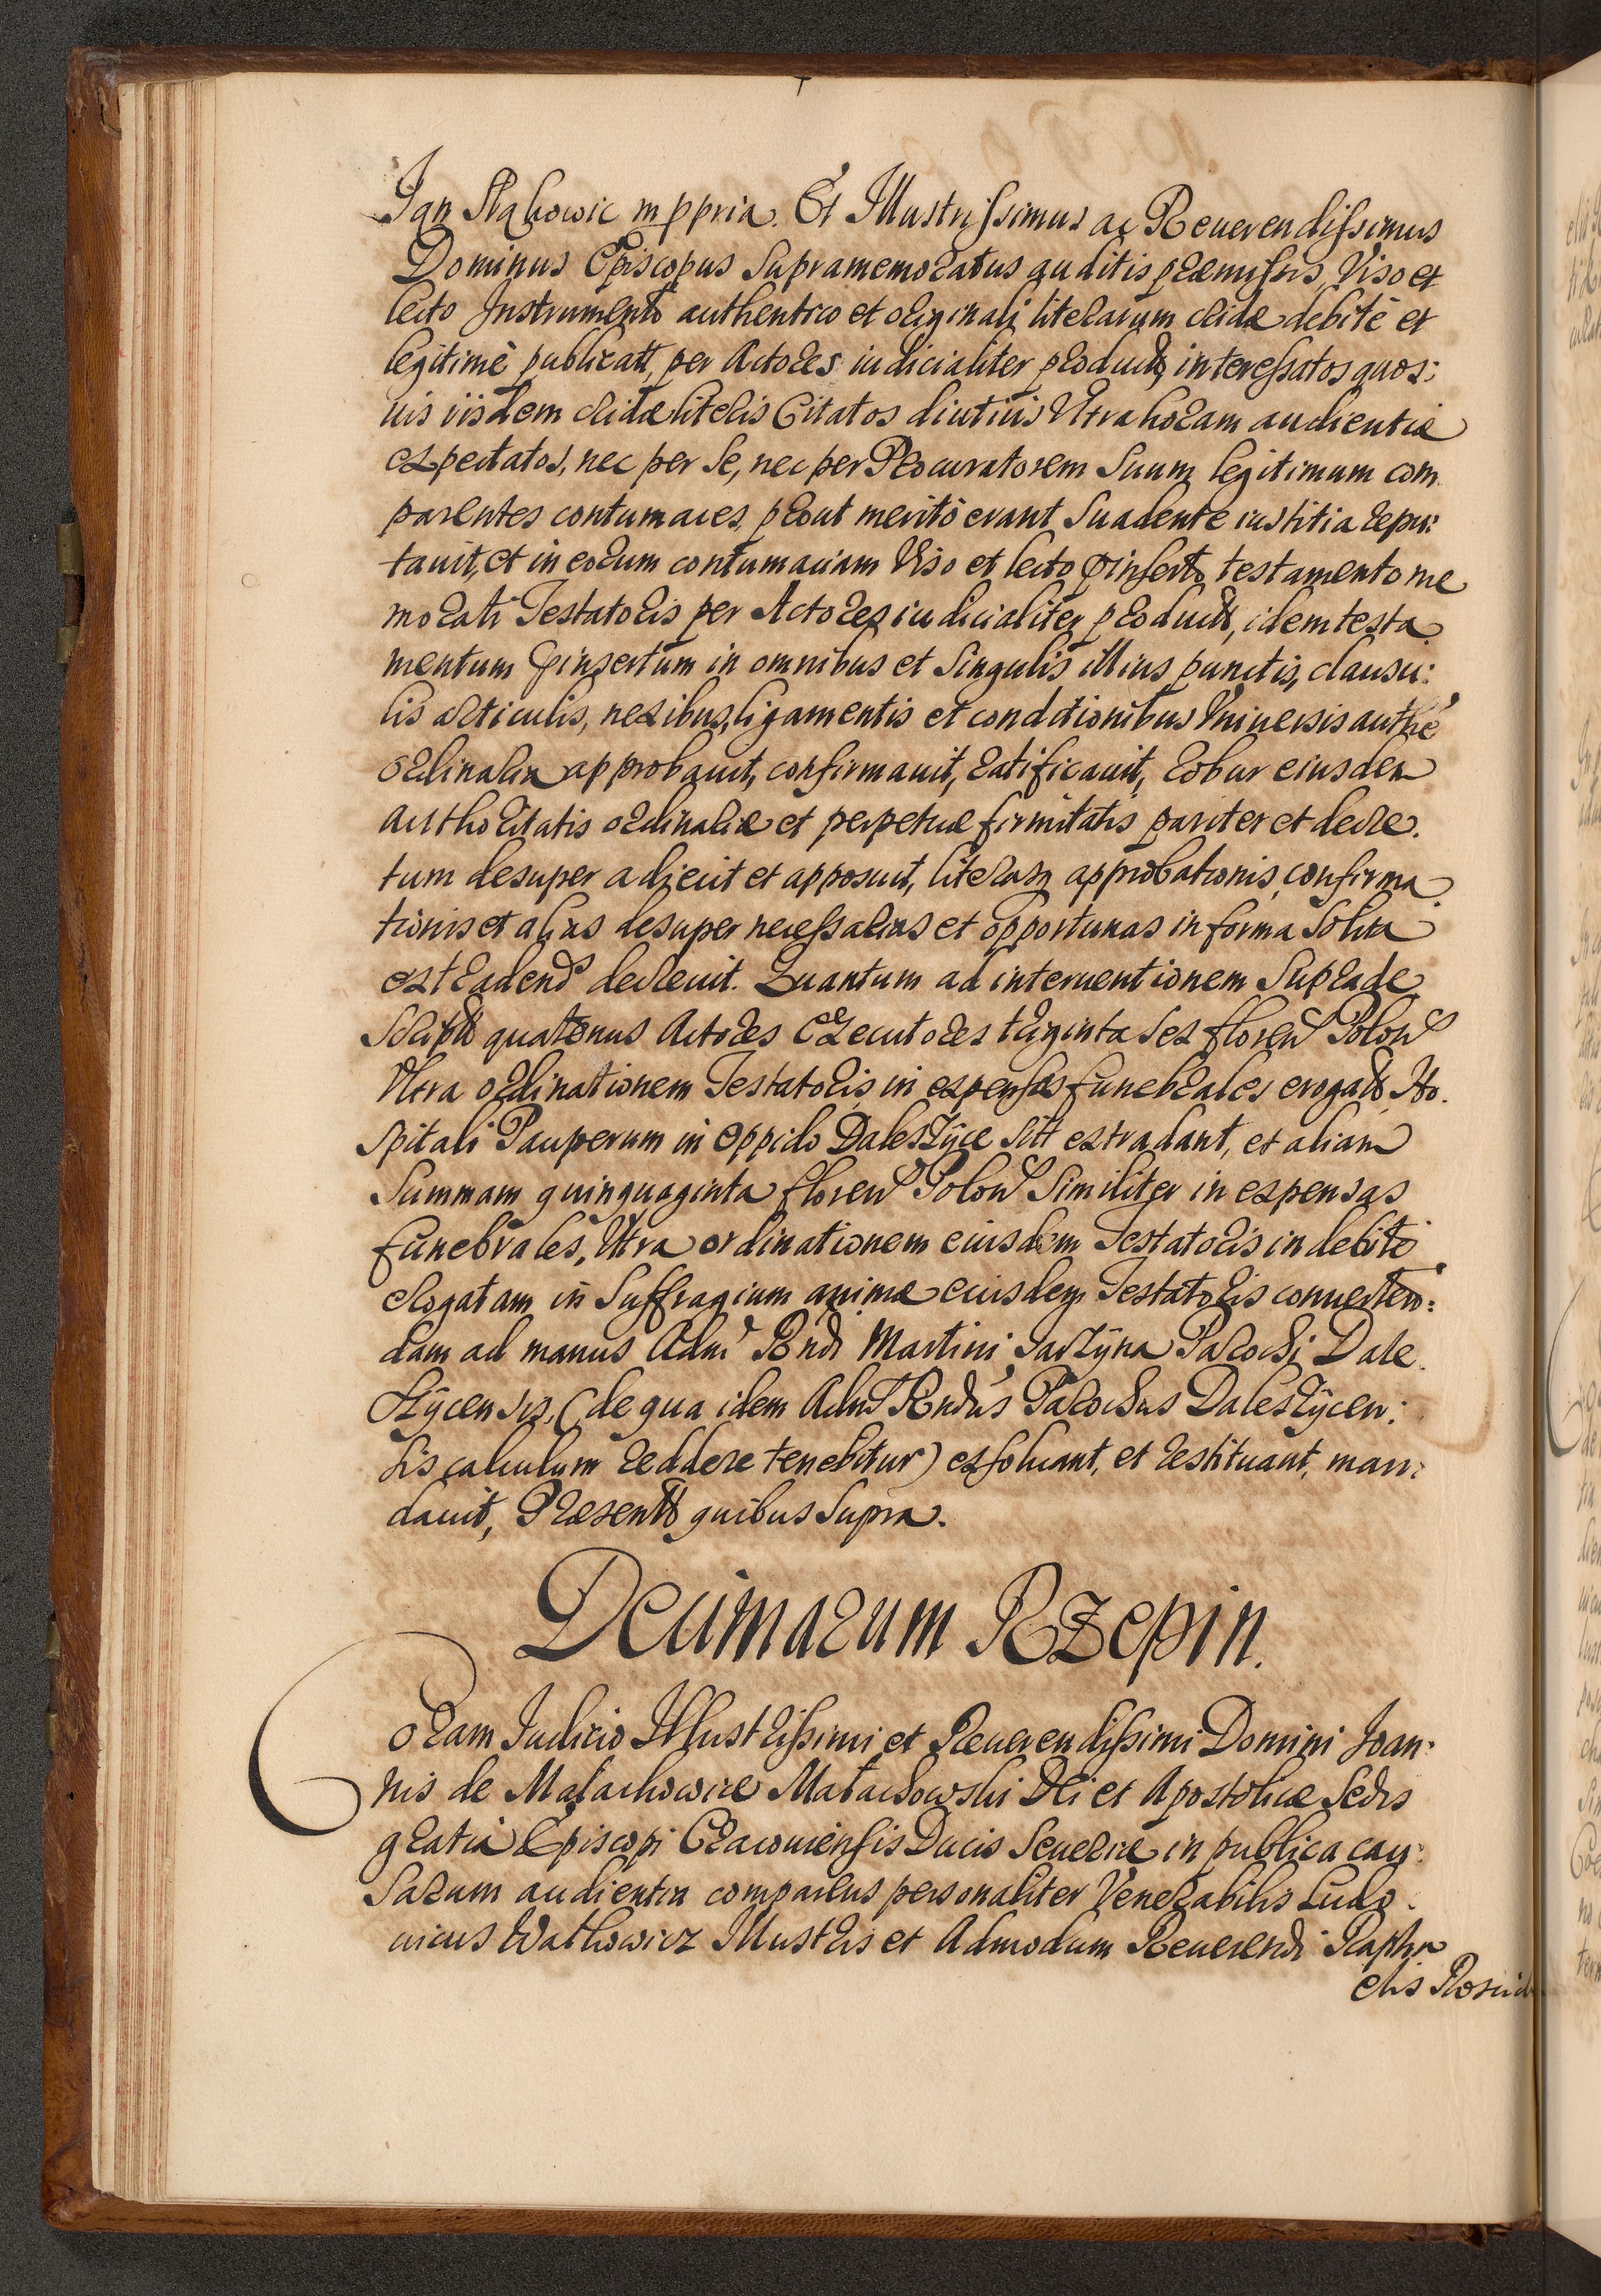 Jan Stachowic mppria. Et Illustrissimus ac Reuerendissimus
Dominus Episcopus Supramemoratus auditis præmissis, Viso et
lecto Instrumento authentico et originali literarum cridæ debitè et
legitimè publicatt, per Actores iudicialiter productt, interessatos quos:
uis iisdem cridæ literis Citatos diutius Vltra horam audientiæ
expectatos, nec per Se, nec per Procuratorem Suum legitimum com
parentes contumaces, prout meritò erant Suadente iustitia repu:
tauit, et in eorum contumaciam Viso et lecto præinserto testamento me
morati Testatoris per Actores iudicialiter productt, idem testa
mentum præinsertum in omnibus et Singulis illius punctis, clausu:
lis articulis, nexibus, ligamentis et conditionibus Vniuersis authe
ordinaria approbauit, confirmauit, ratificauit, robur eiusdem
authoritatis ordinariæ et perpetuæ firmitatis pariter et decre.
tum desuper adiecit et apposuit, literasq approbationis, confirma
tionis et alias desuper necessarias et opportunas in forma Solita
extradend decreuit. Quantum ad interuentionem Suprade
Scriptt quatenus Actores Executores triginta Sex floren Polon
Vltra ordinationem Testatoris in expensas funebrales erogatt Ho.
spitali Pauperum in Oppido Daleszyce Sitt extradant, et aliam
Summam quinquaginta floren Polon Similiter in expensas
funebrales, Vltra ordinationem eiusdem Testatoris indebite
erogatam in Suffragium animæ eiusdem Testatoris conuerten:
dam ad manus Adm Rndi Martini Jarzyna Parochi Dale
szycensis, (de qua idem Adm Rndus Parochus Daleszycen:
sis calculum reddere tenebitur) exsoluant, et restituant, man:
dauit, Præsentt quibus Supra.
Decimarum Rzepin.
Coram Iudicio Illustrissimi et Reuerendissimi Domini Joan:
nis de Małachowice Małachowski Dei et Apostolicæ Sedis
gratia Episcopi Cracouiensis Ducis Seueriæ in publica cau:
Sarum audientia comparens personaliter Venerabilis Ludo.
uicus Wathowicz Illustris et Admodum Reuerendi Rapha
elis